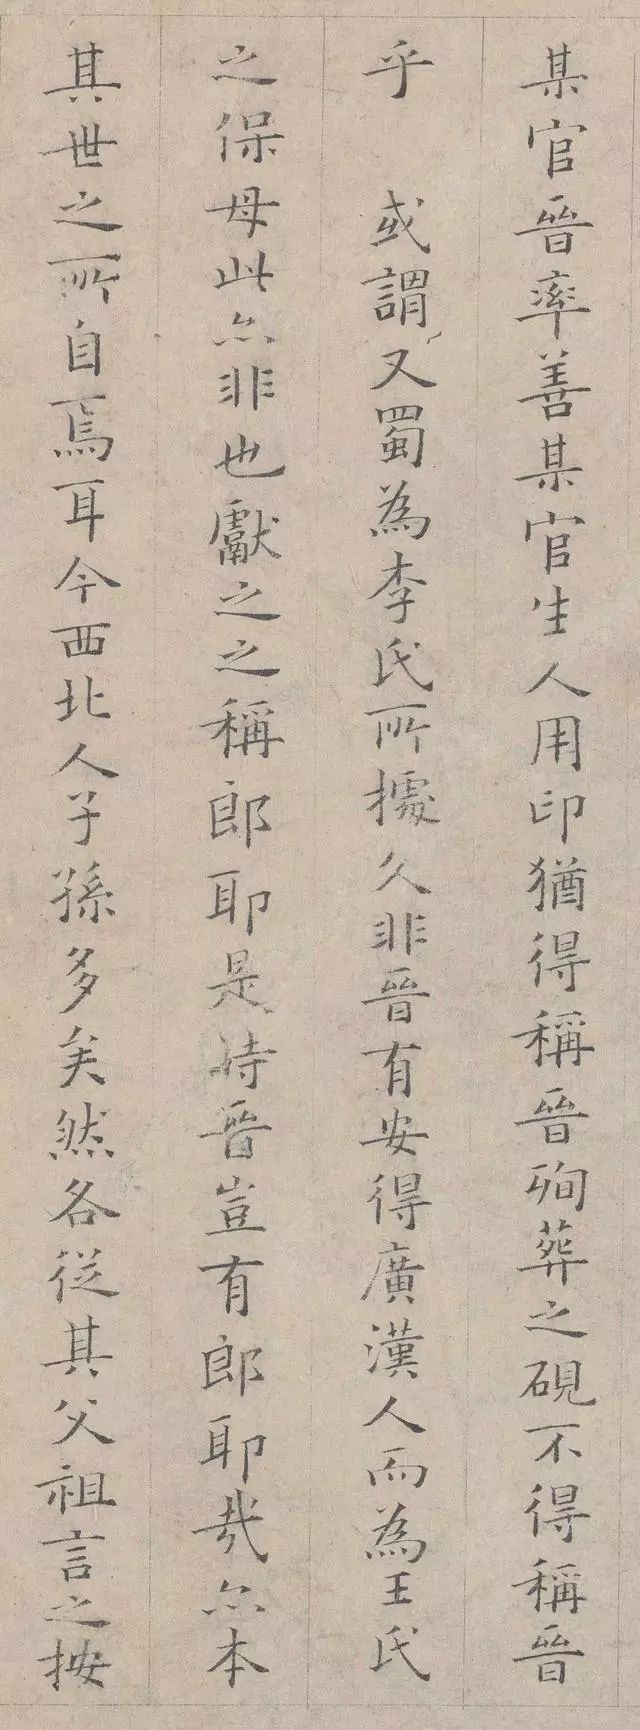 某官晉率善某官生人用印猶得稱晉殉葬之硯不得稱晉
乎　或謂又蜀為李氏所據久非晉有安得廣漢人而為王氏
之保母此亦非也獻之之稱郎耶是時晉豈有郎耶哉亦本
其世之所自焉耳今西北人子孫多矣然各從其父祖言之按